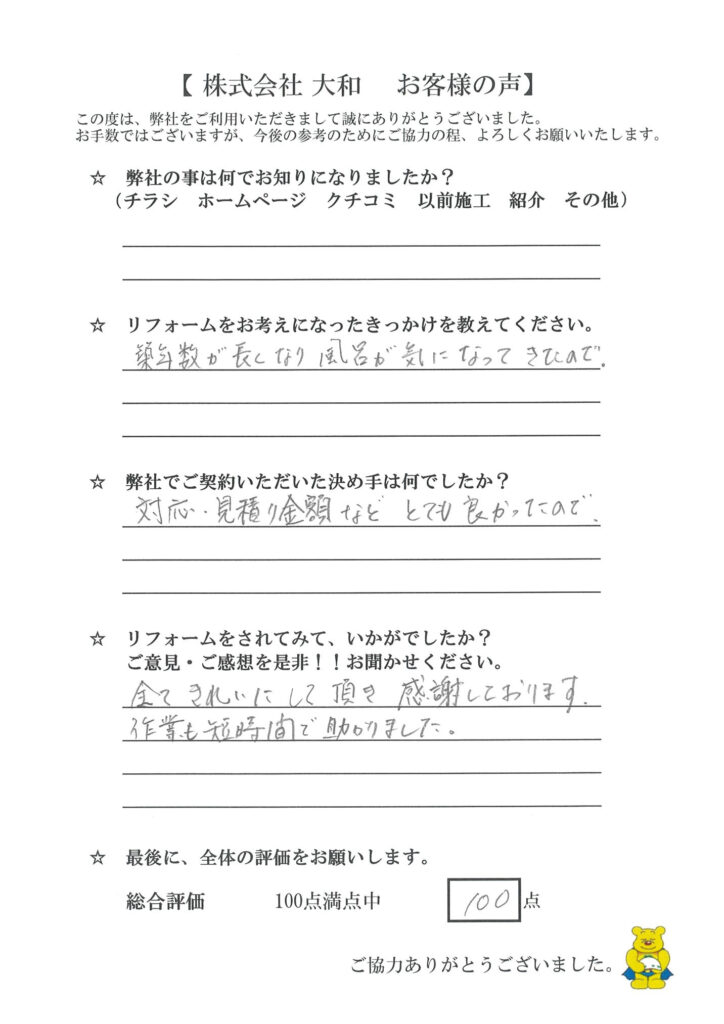 【 株式会社 大和　お客様の声】
この度は、弊社をご利用いただきまして誠にありがとうございました。
お手数ではございますが、今後の参考のためにご協力の程、よろしくお願いいたします。
☆　弊社の事は何でお知りになりましたか？
（チラシ　ホームページ　クチコミ　以前施工　紹介　その他）
☆　リフォームをお考えになったきっかけを教えてください。
築年数が長くなり風呂が気になってきたので。
☆　弊社でご契約いただいた決め手は何でしたか？
対応・見積り金額などとても良かったので。
☆　リフォームをされてみて、いかがでしたか？
ご意見・ご感想を是非！！お聞かせください。
全てきれいにして頂き感謝しております。
作業も短時間で助かりました。
☆　最後に、全体の評価をお願いします。
総合評価　100点満点中　100点
ご協力ありがとうございました。